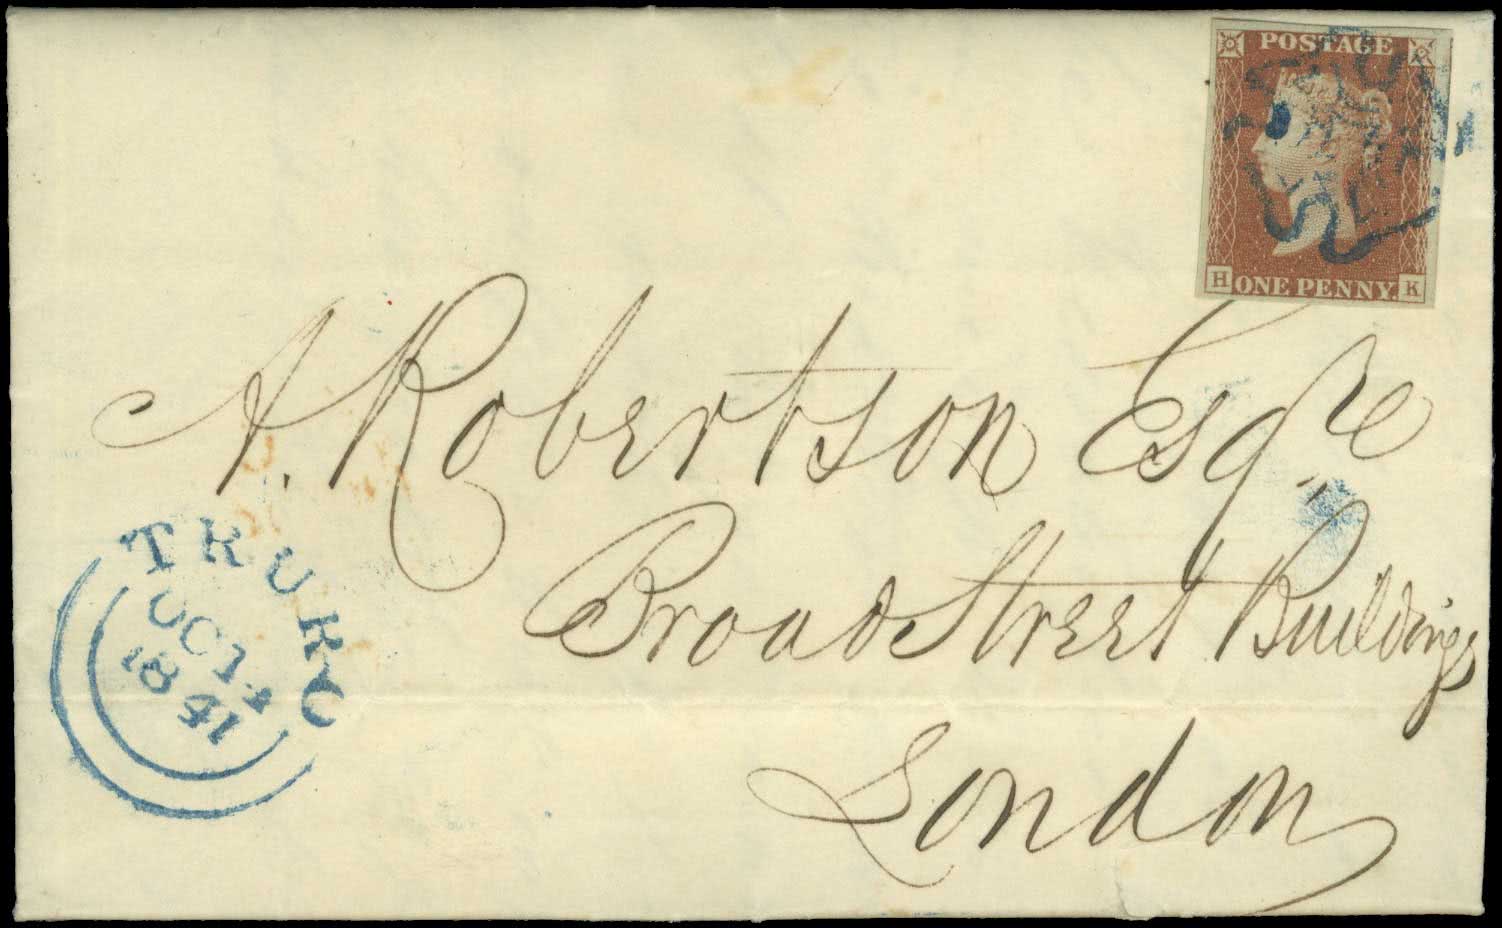 POSTAGE
H ONE PENNY. K
A. Robertson Esqre
Broad Street Buildings
London
TRURO
OC 14
1841